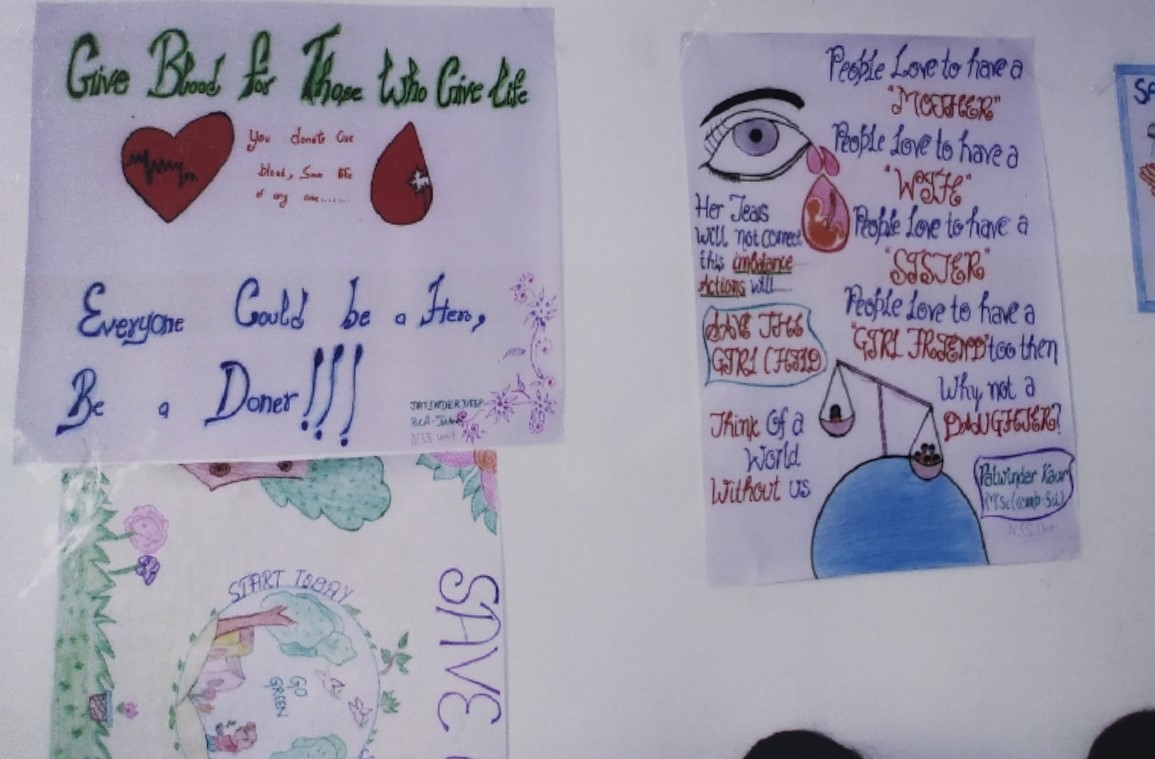 Give Blood for Those Who Give Life
You donate One
blood, Save life
of any one......
Everyone Could be a Hero,
Be a Doner!!!
JATINDERDEEP
BCA-
NSS unit
START TODAY
GO
GREEN
SAVE
People Love to have a
"MOTHER"
People Love to have a
"WIFE"
People Love to have a
"SISTER"
People Love to have a
"GIRL FRIEND" too then
Why not a
DAUGHTER?
Her Tears
will not correct
this imbalance
Actions will
SAVE THE
GIRL CHILD
Think Of a
World
Without us
Palwinder Kaur
M.Sc(comp-Sci)
NSS Unit
SA